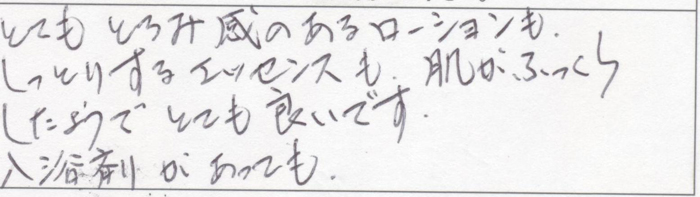 とてもとろみ感のあるローションも、
しっとりするエッセンスも、肌がふっくら
したようでとても良いです。
入浴剤があっても、